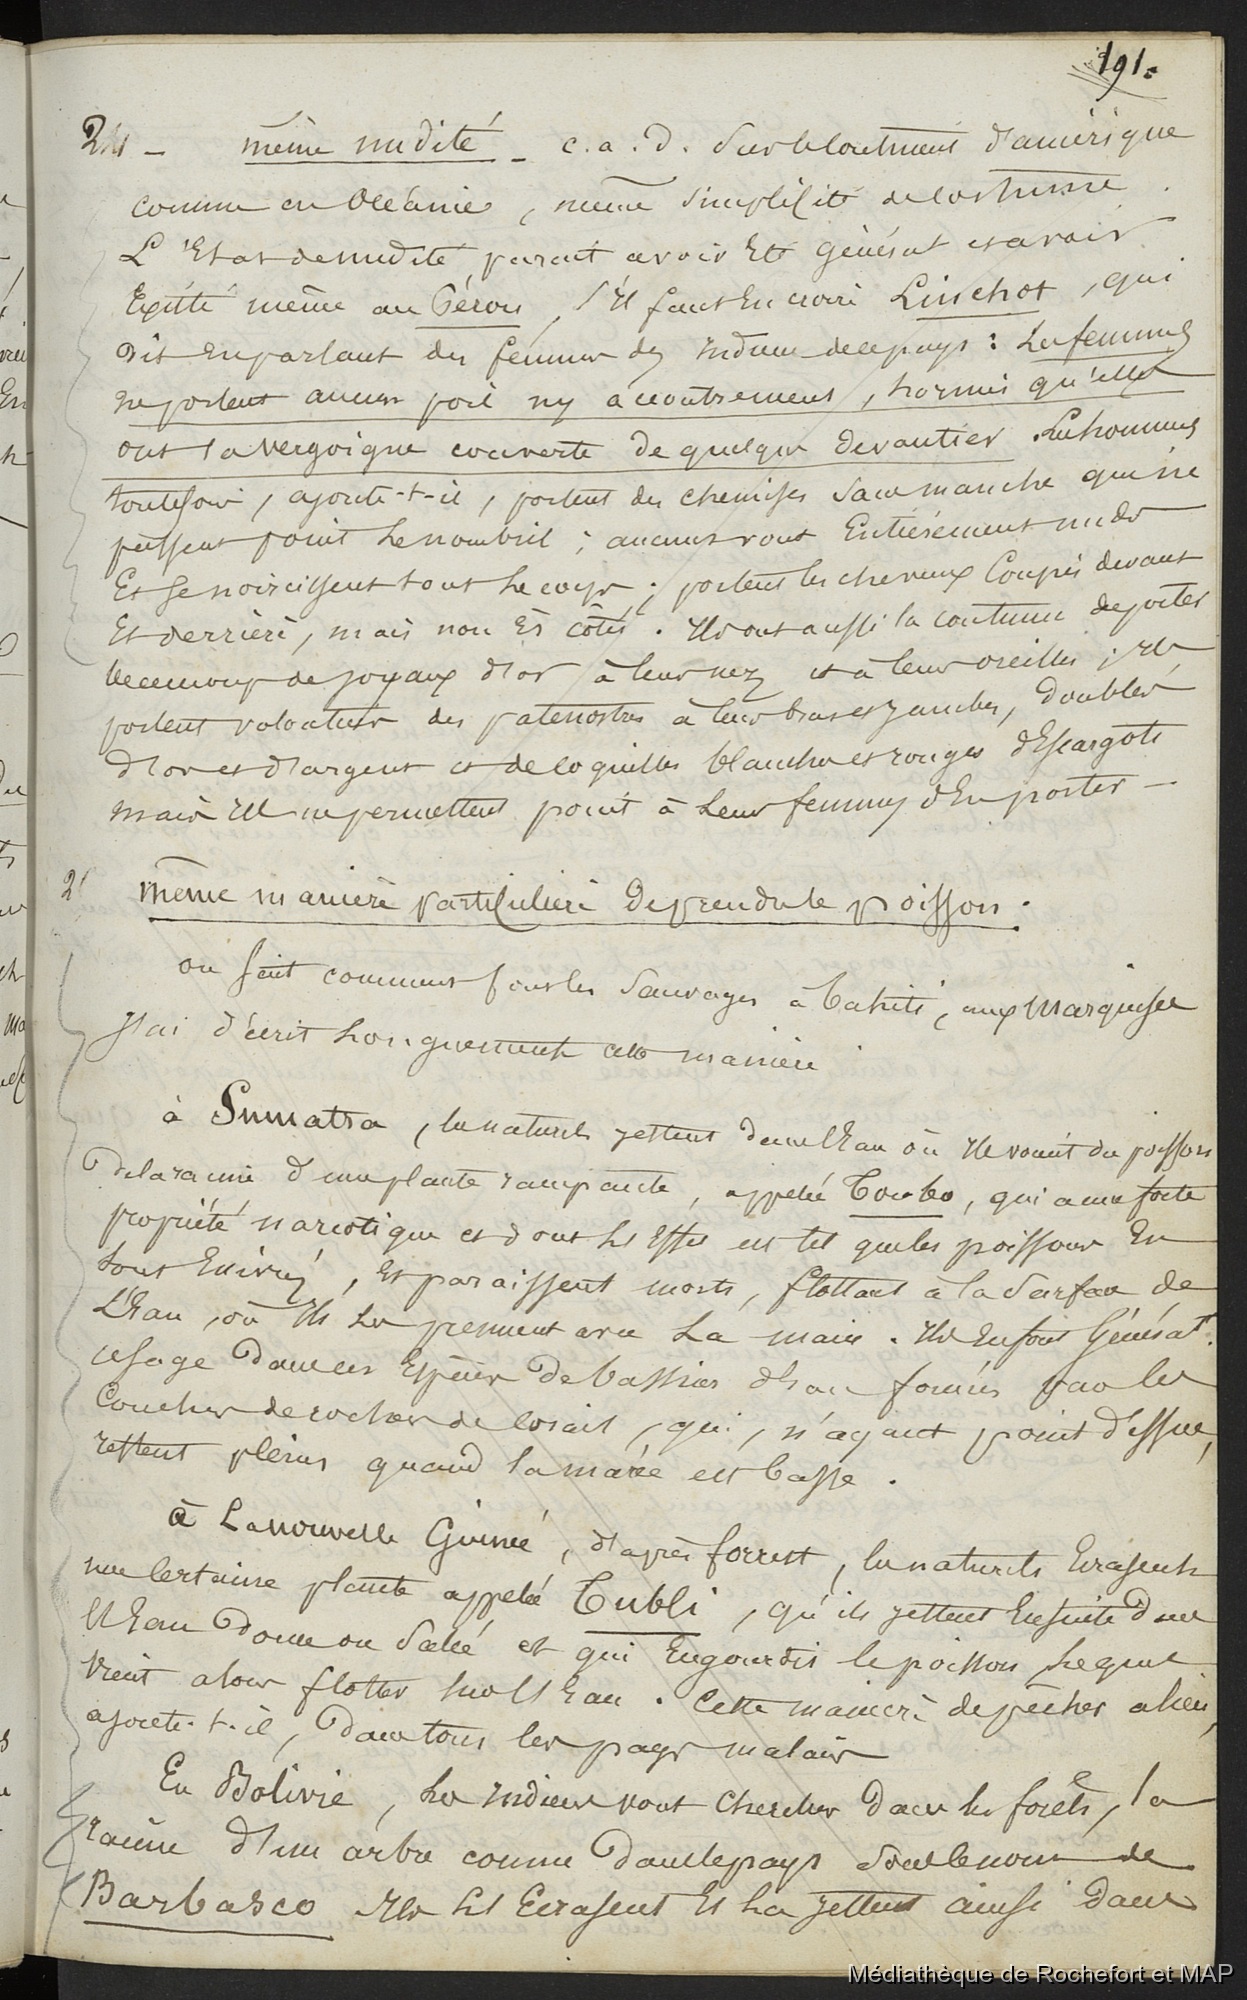 191.
24 - même nudité - c. a. d. sur le continent d'amérique
comme en Océanie, même simplicité de costume.
L'Etat de nudité, parait avoir Eté général et avoir
Existé même au Pérou, s'il faut En croire Linschot, qui
dit En parlant des femmes des indiens de ce pays : Les femmes
ne portent aucun poil ny accoutrement, hormis qu'elles
ont la vergoigne couverte de quelque devantier. Les hommes
toutefois, ajoute-t-il, portent des chemises sans manche qui ne
passent point le nombril ; aucuns vont Entièrement nuds
Et se noircissent tout le corps ; portent les cheveux Coupés devant
Et derrière, mais non Es côtés. Ils ont aussi la coutume de porter
beaucoup de joyaux d'or à leur nez et à leurs oreilles ; Ils
portent volontiers des patenostres à leurs bras et jambes, doubles
d'or et d'argent et de coquilles blanches et rouges d'Escargots
mais Ils ne permettent point à leurs femmes d'En porter -
2 même manière particulière de prendre le poisson.
on sait comment font les Sauvages à Tahiti, aux Marquises
J'ai décrit longuement cette manière
à Sumatra, les naturels jettent dans l'Eau où Ils voient du poisson
De la racine d'une plante rampante, appelée Toubo, qui a une forte
propriété narcotique et dont les Effet est tel que les poissons En
sont Enivrés, Et paraissent morts, flottant à la Surface de
L'Eau, où Ils les prennent avec la main. Ils En font Général.
usage dans les Espèces de bassins d'Eau formés par les
Couches de rochers de corail, qui, n'ayant point d'issue,
restent pleins quand la marée est basse.
à La nouvelle Guinée, d'après forrest, les naturels Ecrasent
une Certaine plante appelée Tubli, qu'ils jettent Ensuite dans
l'Eau Douce ou Salée et qui Engourdit le poisson lequel
vient alors flotter sur l'Eau. Cette manière de pêcher a lieu,
ajoute-t-il, dans tous les pays malais
En Bolivie, les indiens vont chercher dans les forêts, la
racine d'un arbre connu dans le pays sous le nom de
Barbasco Ils les Ecrasent Et la jettent ainsi dans
Médiathèque de Rochefort et MAP